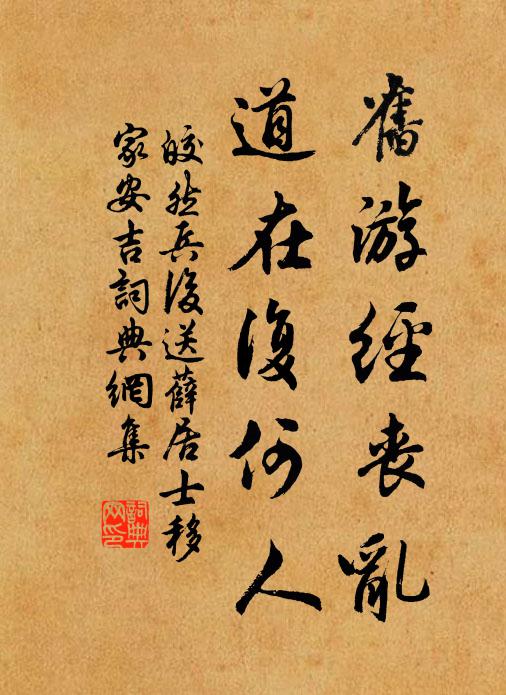 舊游經喪亂
道在復何人
皎然兵後送薛居士移
家安吉詞典網集
詞典网印